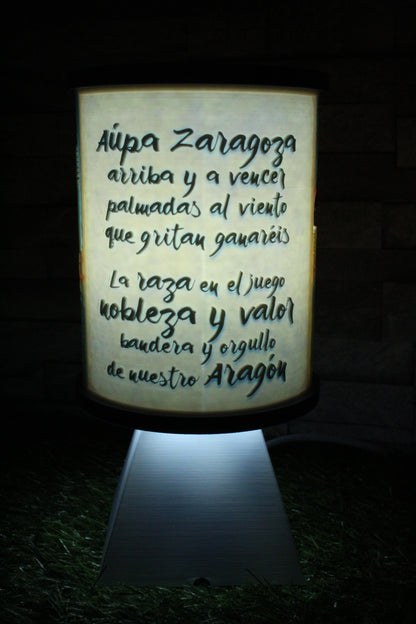 Aúpa Zaragoza
arriba y a vencer
palmadas al viento
que gritan ganaréis
La raza en el juego
nobleza y valor
bandera y orgullo
de nuestro Aragón